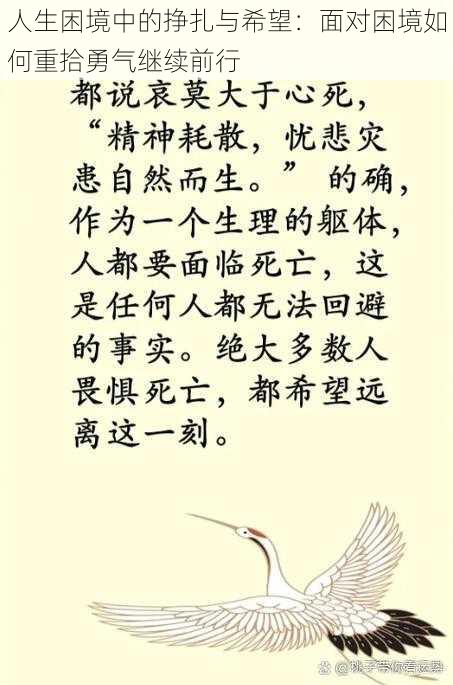 人生困境中的挣扎与希望：面对困境如
何重拾勇气继续前行
都说哀莫大于心死，
“精神耗散，忧悲灾
患自然而生。” 的确，
作为一个生理的躯体，
人都要面临死亡，这
是任何人都无法回避
的事实。绝大多数人
畏惧死亡，都希望远
离这一刻。
@桃子带你看运势